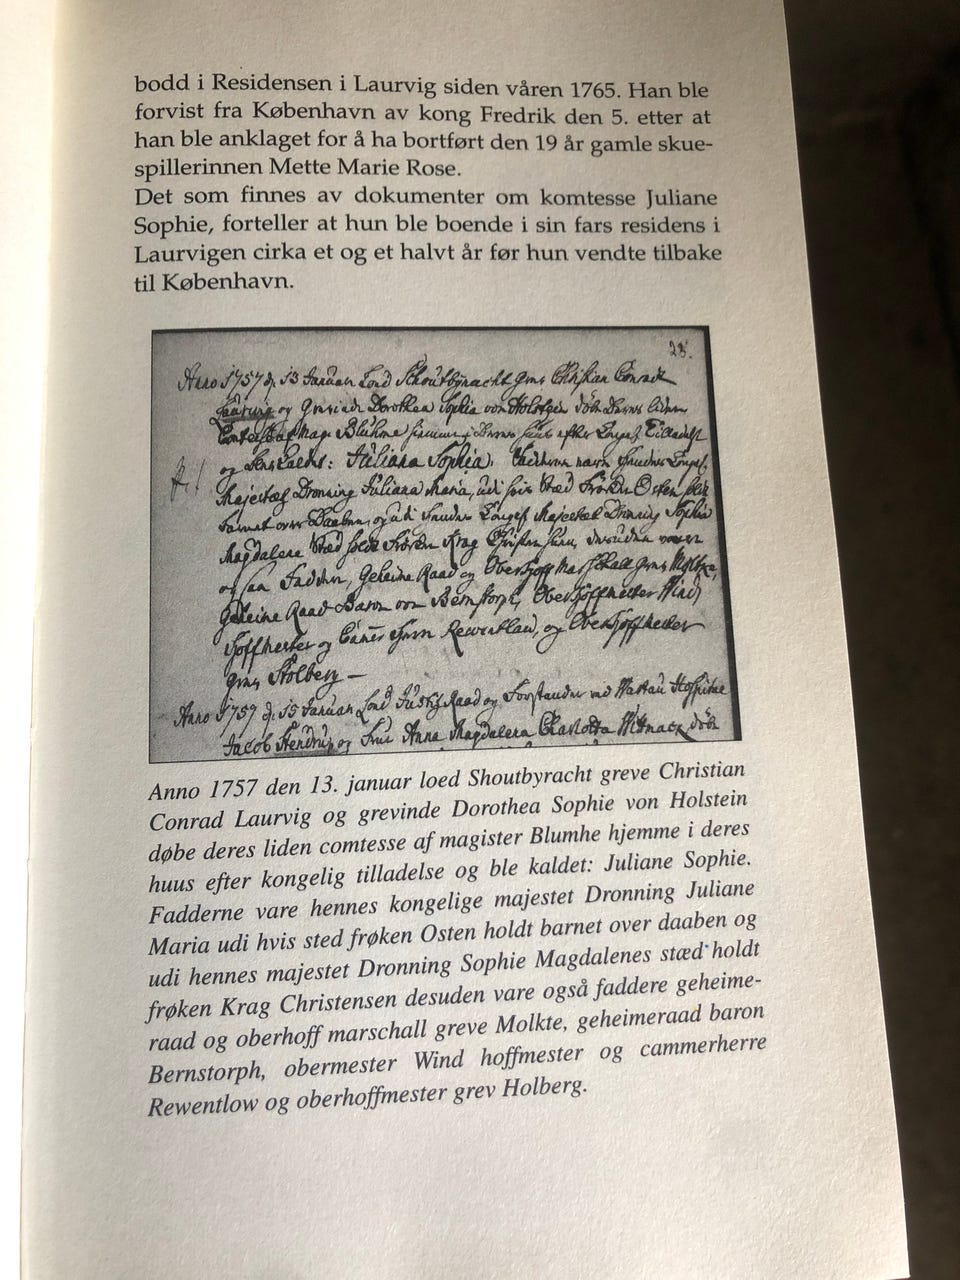 bodd i Residensen i Laurvig siden våren 1765. Han ble
forvist fra København av kong Fredrik den 5. etter at
han ble anklaget for å ha bortført den 19 år gamle skue-
spillerinnen Mette Marie Rose.
Det som finnes av dokumenter om komtesse Juliane
Sophie, forteller at hun ble boende i sin fars residens i
Laurvigen cirka et og et halvt år før hun vendte tilbake
til København.
28.
Anno 1757 d. 13 Januari Christian Conrad
Laurvig og Dorothea Sophia von Holstein
Mag. Bluhme
og Juliana Sophia.
Majestæt Dronning Juliana Maria, udi hvis Stæd Frøken Osten
Barnet over Daaben, og udi Majestæt Dronning Sophia
Magdalene Stæd Frøken Krag
og Geheime Raad og
Geheime Raad Baron von Bernstorph,
Hoffmester og Rewentlau, og
Stolberg —
Anno 1757 d. 15 Januari og
Jacob og Anna Magdalena
Anno 1757 den 13. januar loed Shoutbyracht greve Christian
Conrad Laurvig og grevinde Dorothea Sophie von Holstein
døbe deres liden comtesse af magister Blumhe hjemme i deres
huus efter kongelig tilladelse og ble kaldet: Juliane Sophie.
Fadderne vare hennes kongelige majestet Dronning Juliane
Maria udi hvis sted frøken Osten holdt barnet over daaben og
udi hennes majestet Dronning Sophie Magdalenes stæd holdt
frøken Krag Christensen desuden vare også faddere geheime-
raad og oberhoff marschall greve Molkte, geheimeraad baron
Bernstorph, obermester Wind hoffmester og cammerherre
Rewentlow og oberhoffmester grev Holberg.